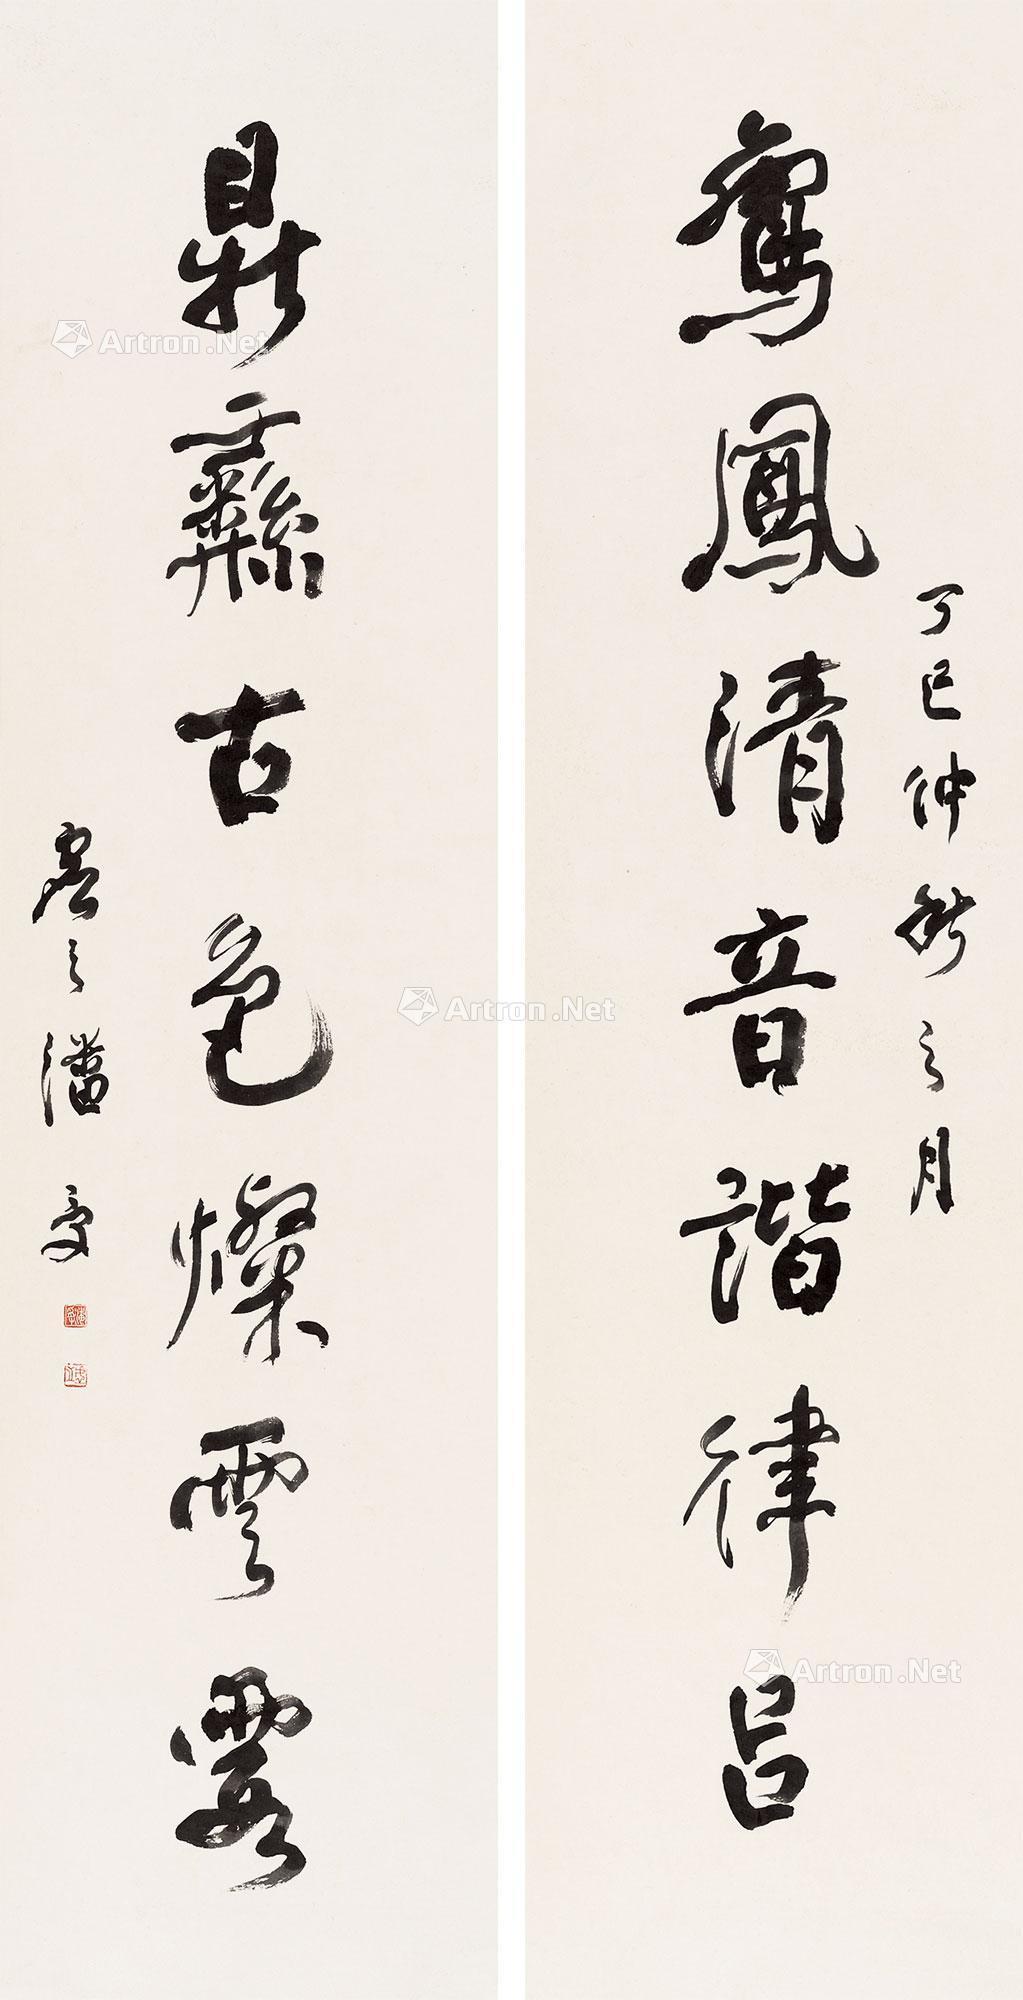 丁巳仲秋之月
鸞鳳清音諧律呂
鼎彝古色燦雲霞
虛之潘受
Artron.Net
Artron.Net
Artron.Net